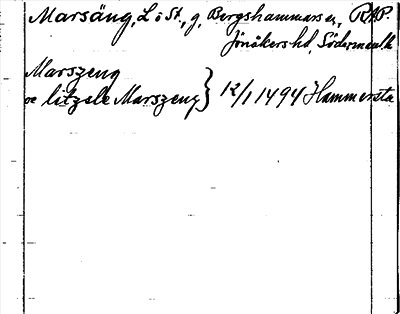 Marsäng, L o St., g, Bergshammars sn, RAP.
Jönåkers hd, Södermanl.
Marszeng
oc litzsle Marszeng } 12/1 1494 Hammersta